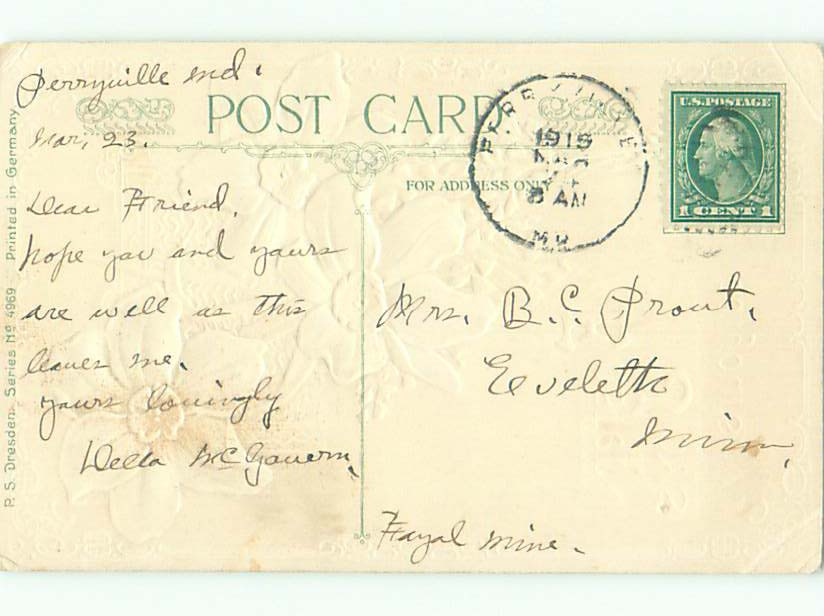 Perryville Md.
Mar, 23.
Dear Friend,
hope you and yours
are well as this
leaves me.
yours lovingly
Della McGovern
POST CARD
FOR ADDRESS ONLY
PERRYVILLE
1916
MAR
8 AM
MD.
U.S. POSTAGE
1 CENT 1
Mrs. B.C. Prout,
Eveleth
Minn,
Fayal Mine.
P. S. Dresden. Series No 4969 Printed in Germany